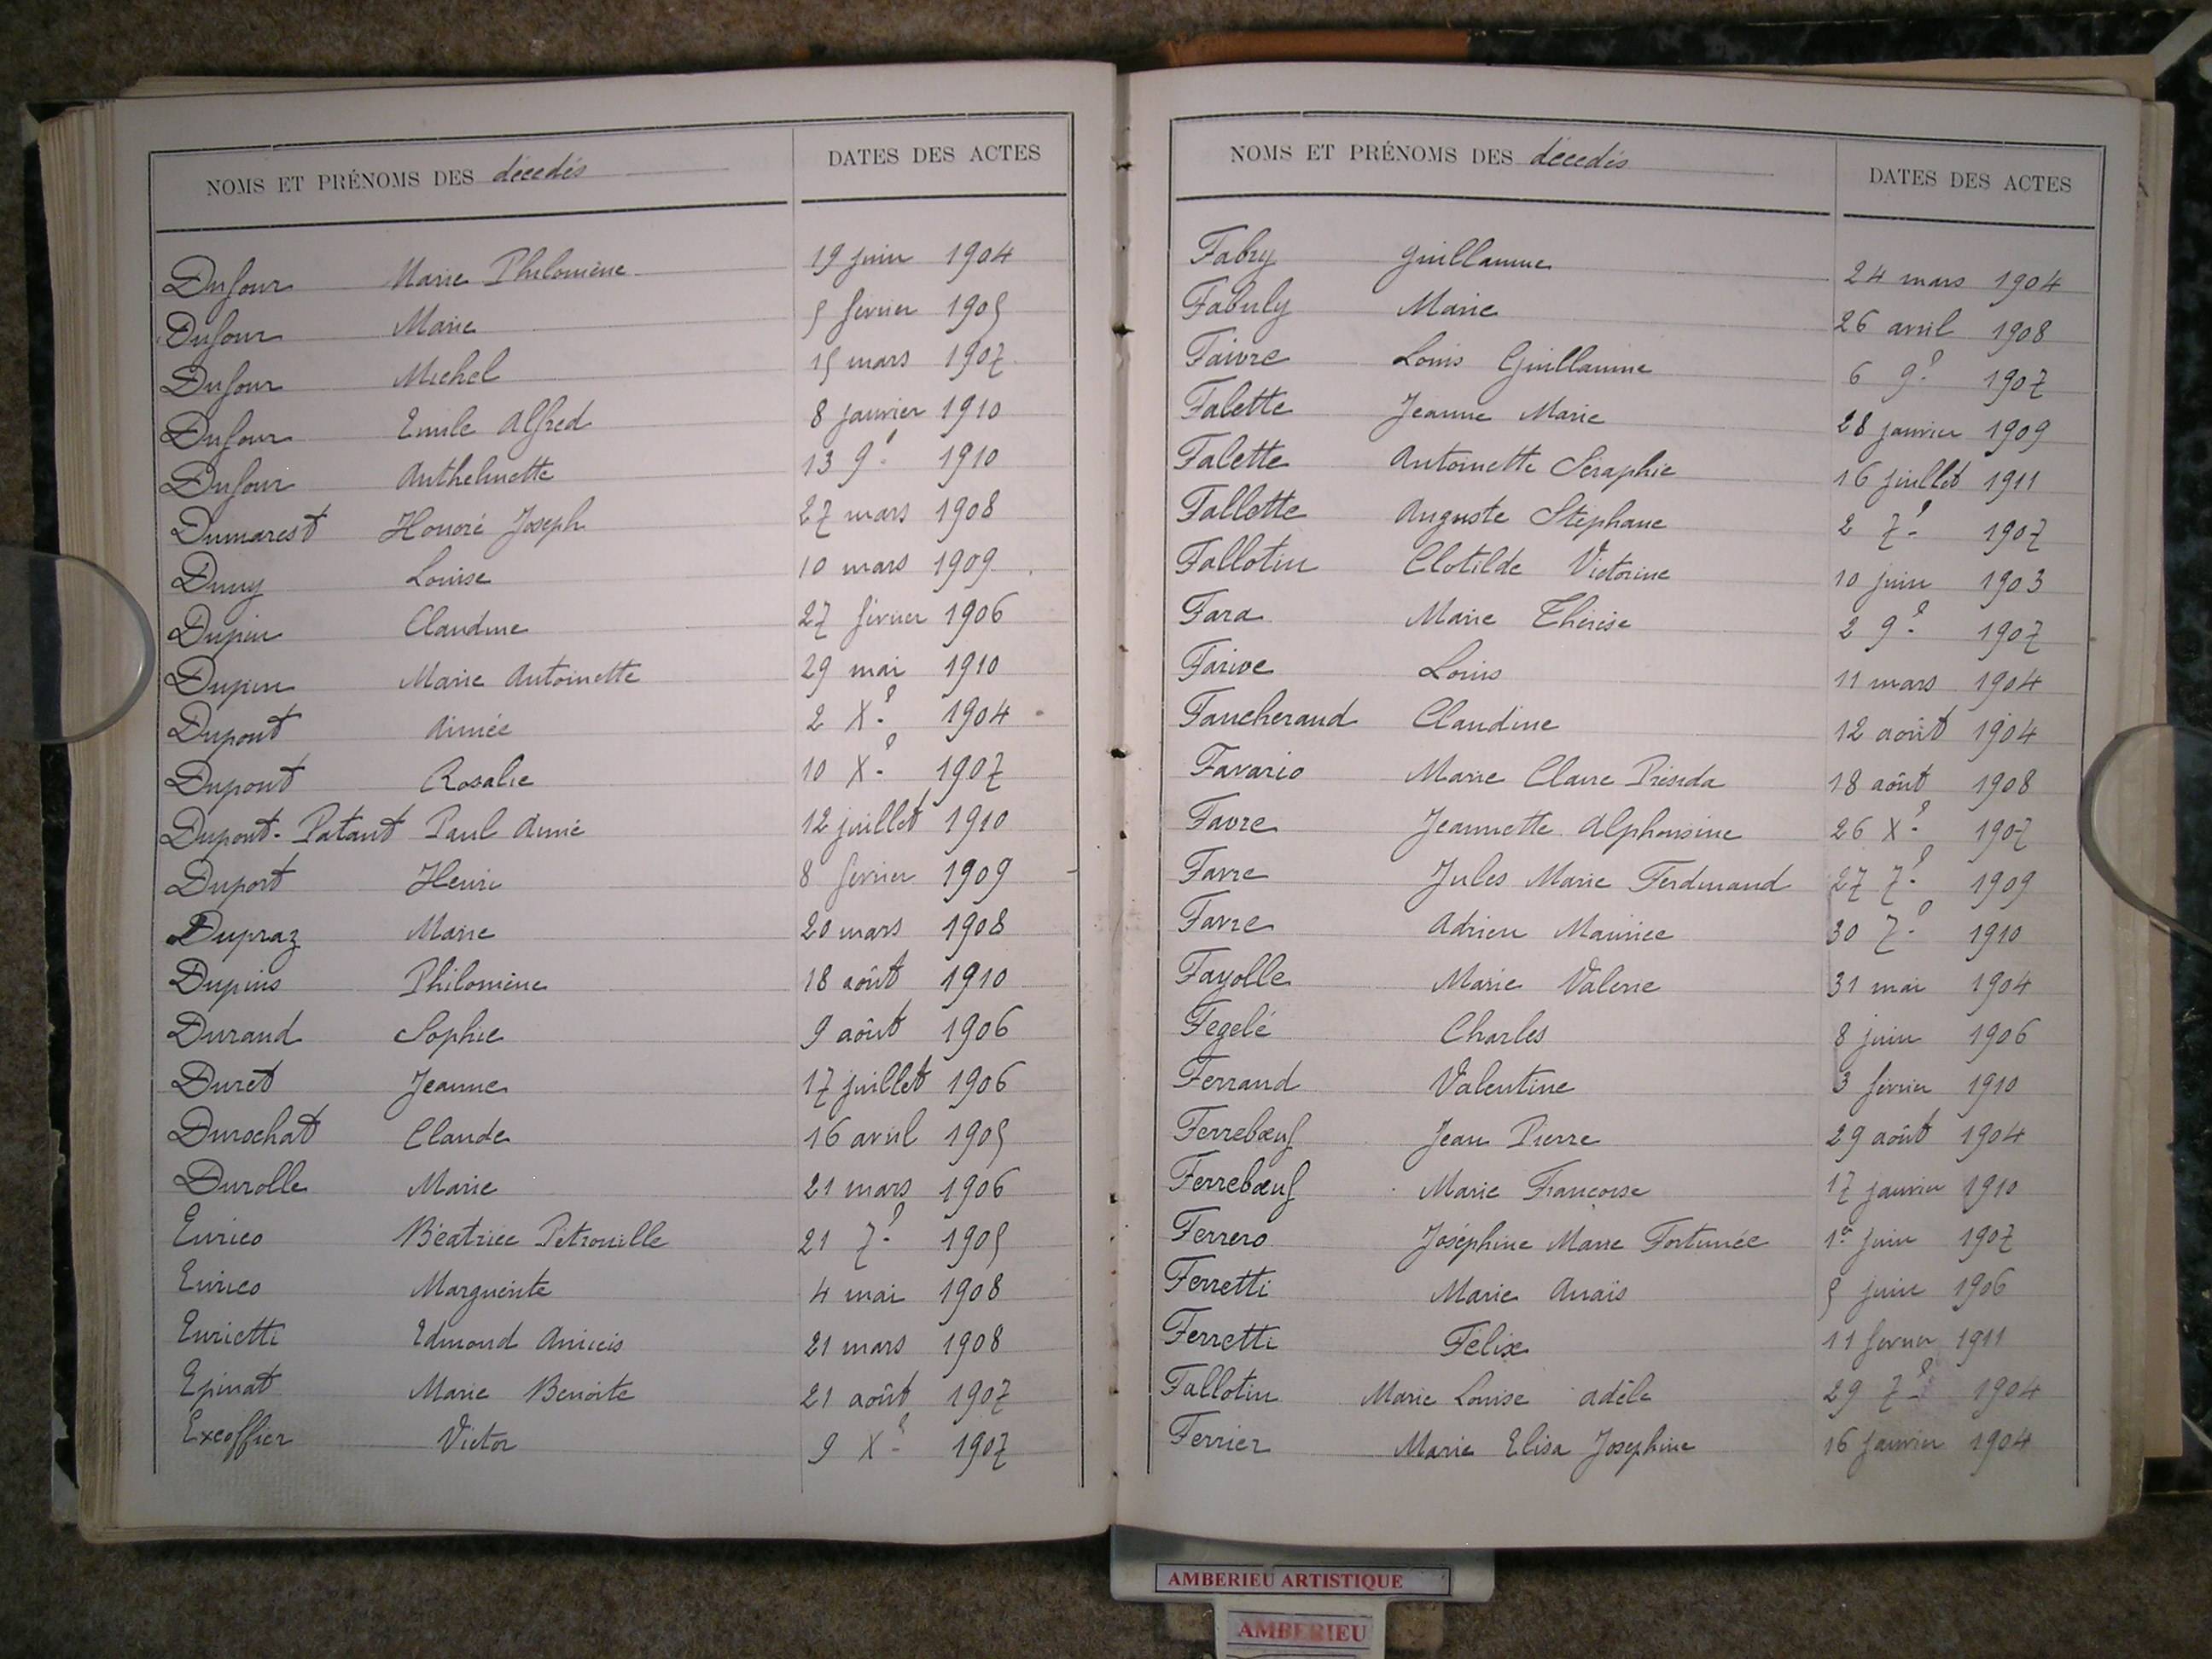 NOMS ET PRÉNOMS DES décedés DATES DES ACTES
Dufour Marie Philomène 19 juin 1904
Dufour Marie 5 février 1905
Dufour Michel 15 mars 1907
Dufour Emile Alfred 8 janvier 1910
Dufour Anthelmette 13 9e 1910
Dumarest Honoré Joseph 27 mars 1908
Duny Louise 10 mars 1909
Dupin Claudine 27 février 1906
Dupin Marie Antoinette 29 mai 1910
Dupont Aimée 2 Xe 1904
Dupont Rosalie 10 Xe 1907
Dupont-Patant Paul Aimé 12 juillet 1910
Duport Henri 8 février 1909
Dupraz Marie 20 mars 1908
Dupuis Philomène 18 août 1910
Durand Sophie 9 août 1906
Duret Jeanne 17 juillet 1906
Durochat Claude 16 avril 1905
Durolle Marie 21 mars 1906
Enrico Béatrice Pétronille 21 7e 1905
Enrico Marguerite 4 mai 1908
Enrietti Edmond Amicis 21 mars 1908
Epinat Marie Benoite 21 août 1907
Excoffier Victor 9 Xe 1907
NOMS ET PRÉNOMS DES décedés DATES DES ACTES
Fabry Guillaume 24 mars 1904
Fabuly Marie 26 avril 1908
Faivre Louis Guillaume 6 9e 1907
Falette Jeanne Marie 28 janvier 1909
Falette Antoinette Séraphie 16 juillet 1911
Fallette Auguste Stéphane 2 7e 1907
Fallotin Clotilde Victorine 10 juin 1903
Fara Marie Thérèse 2 9e 1907
Farive Louis 11 mars 1904
Faucherand Claudine 12 août 1904
Favario Marie Claire 18 août 1908
Favre Jeannette Alphonsine 26 Xe 1907
Favre Jules Marie Ferdinand 27 7e 1909
Favre Adrien Maurice 30 7e 1910
Fayolle Marie Valerie 31 mai 1904
Fegelé Charles 8 juin 1906
Ferrand Valentine 3 février 1910
Ferrebœuf Jean Pierre 29 août 1904
Ferrebœuf Marie Françoise 17 janvier 1910
Ferrero Joséphine Marie Fortunée 1er juin 1907
Ferretti Marie Anaïs 5 juin 1906
Ferretti Félix 11 fevrier 1911
Fallotin Marie Louise Adèle 29 7e 1904
Ferrier Marie Elisa Josephine 16 janvier 1904
AMBERIEU ARTISTIQUE
AMBERIEU